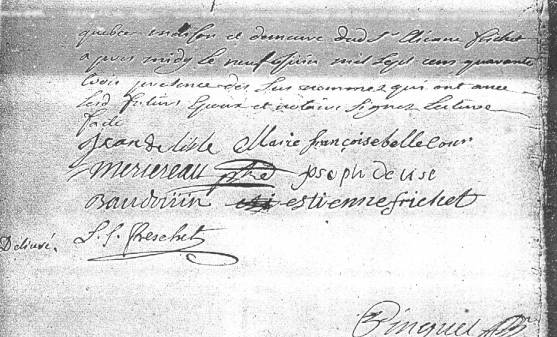 quebec maison et demeure dud. Sr. Etienne frichet
apres midy le neuf juin mil sept cens quarante
trois presence des Sus nommez qui ont avec
lesd. futurs Epoux et notaire Signez Lecture
faite
Jean de lisle Marie françoise belle cour
merscreau joseph De lise
Baudouin estienne frichet
Delivré. L. f. freschet
Pinguet